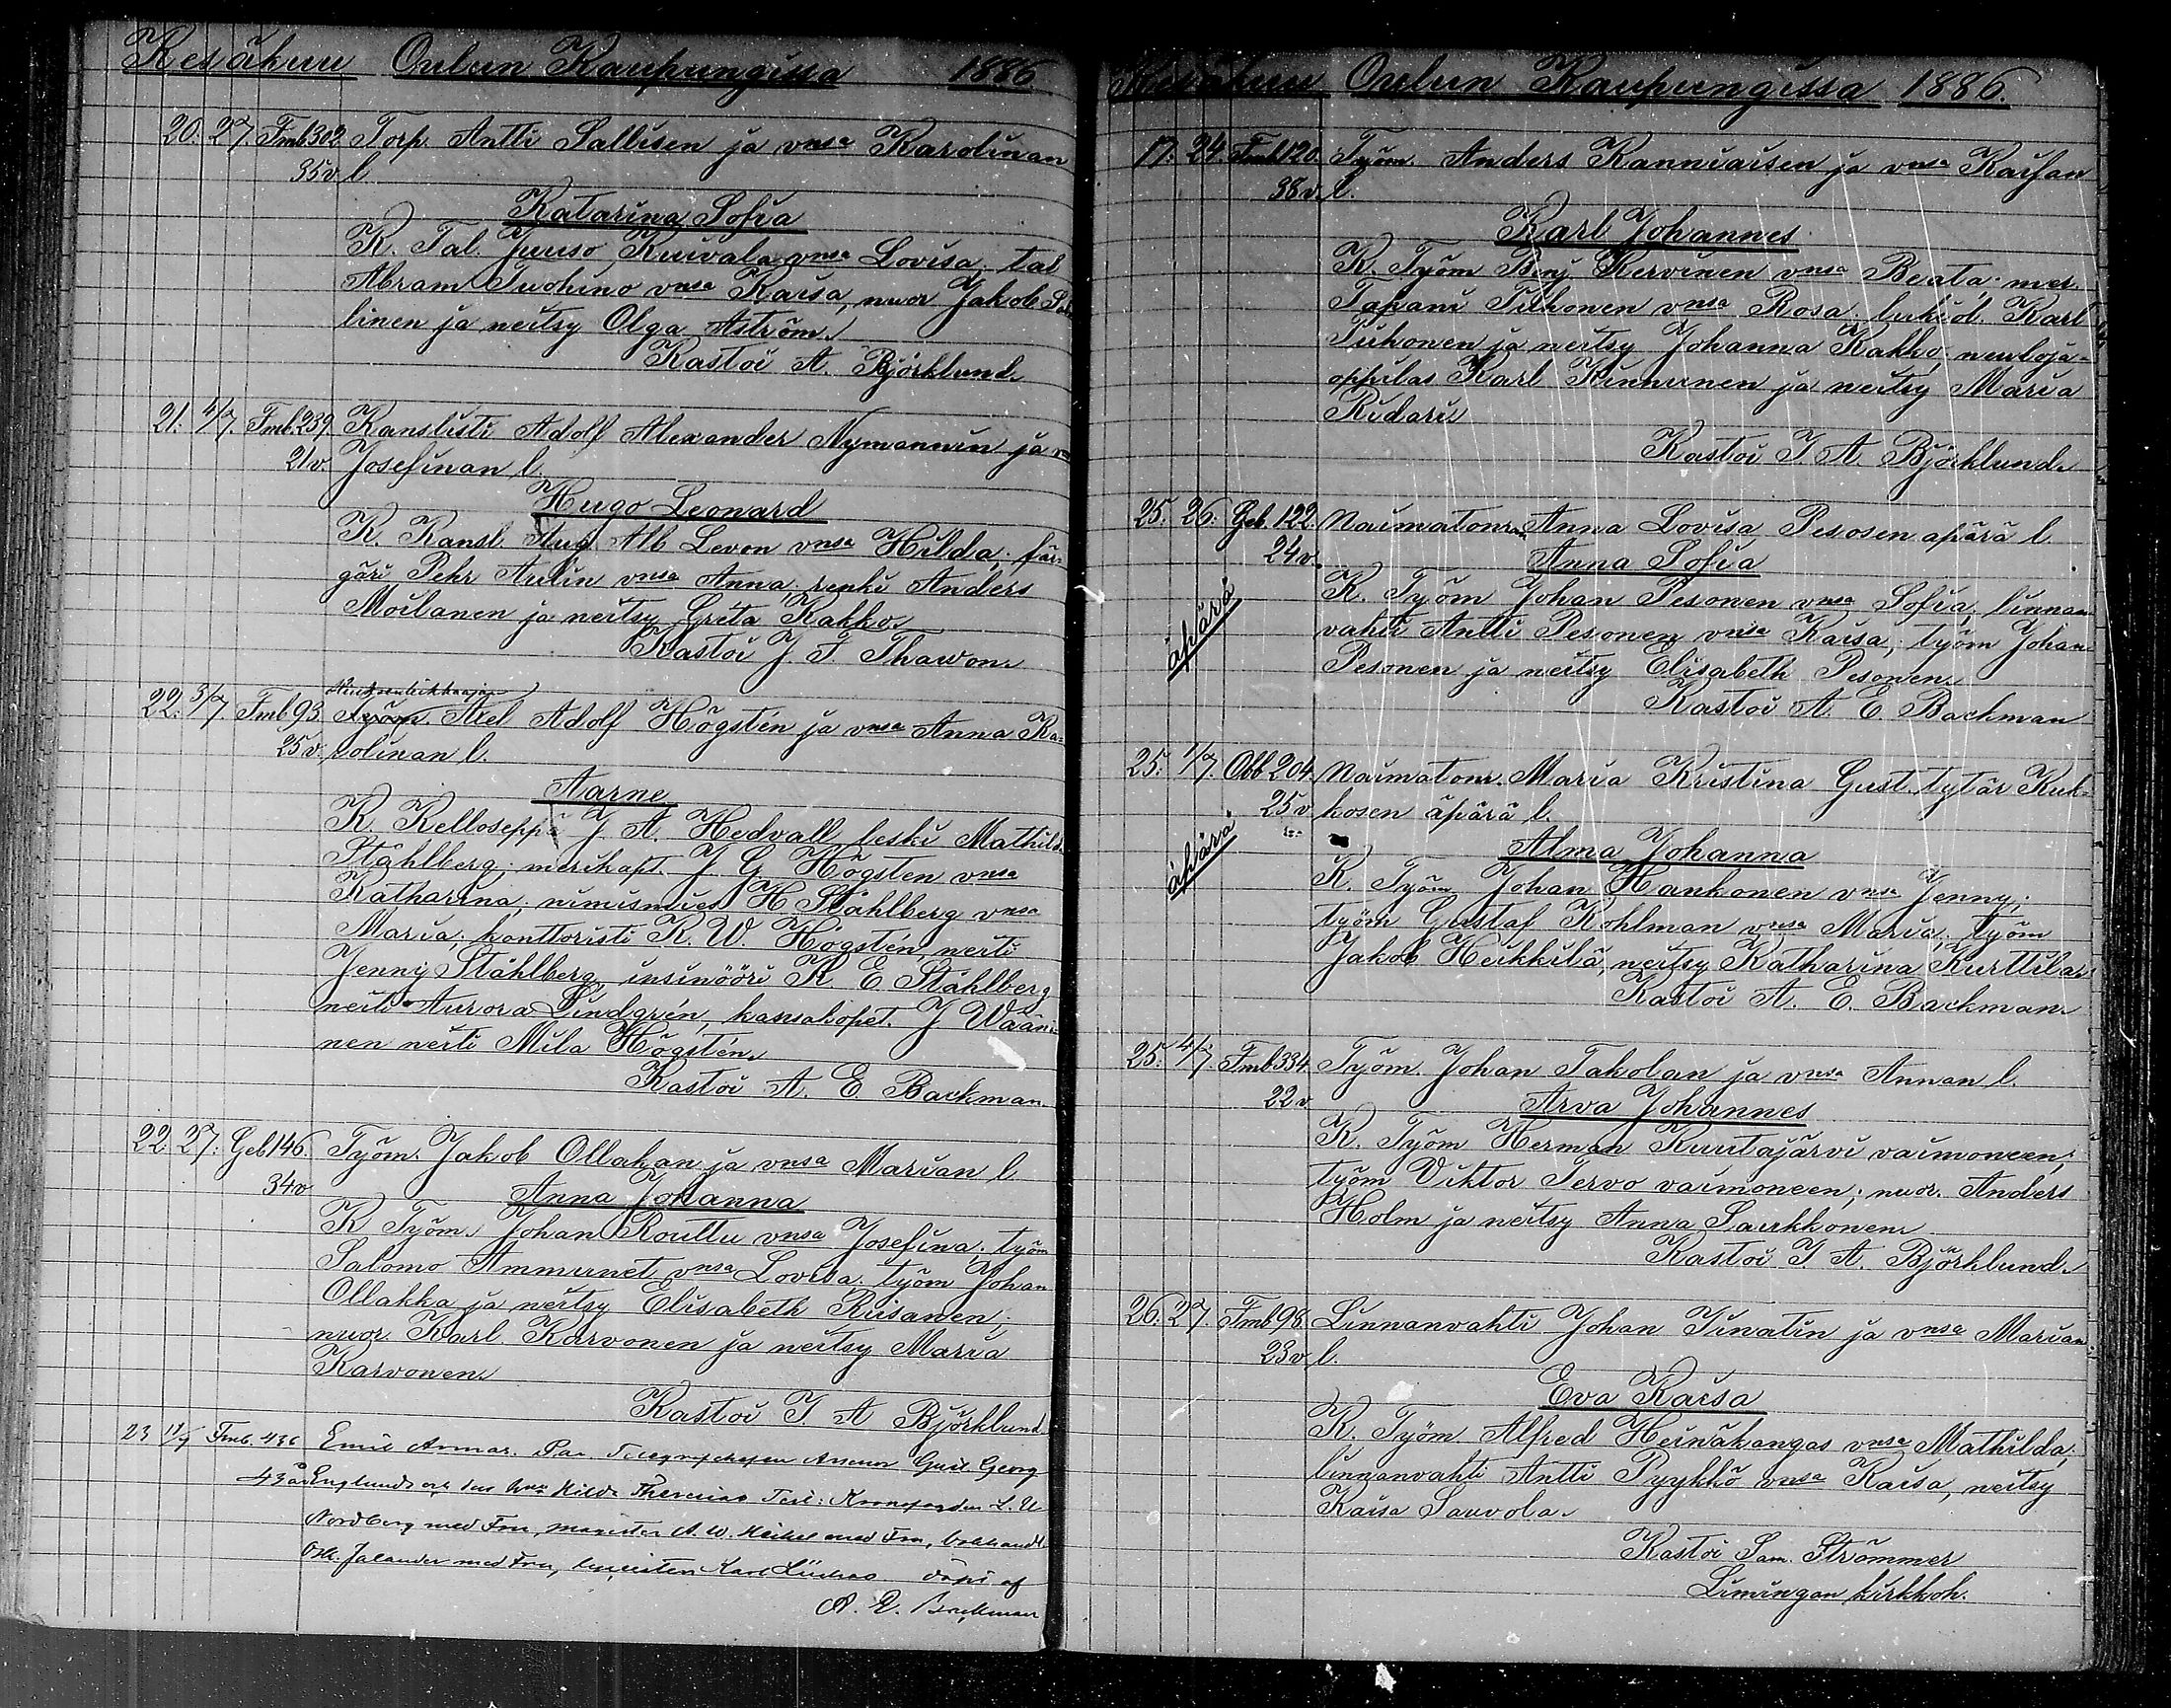 Kesäkuu Oulun Kaupungissa 1886
20. 27. Fmb302 Torp. Antti Sallisen ja vmsa Karolinan
35v l.
Katarina Sofia
K. Tal. Juuso Kuivala vmsa Lovisa, tal
Abram Tuohino vmsa Kaisa, nuor Jakob Sal
linen ja neitsy Olga Aström.
Kastoi A. Björklund.
21. 4/7. Fmb.239. Kanslisti Adolf Alexander Nymannin ja
21v. Josefinan l.
Hugo Leonard
K. Kansl. Aug. Alb Leven vmsa Hilda; fär-
gäri Pehr Aulin vmsa Anna; renki Anders
Moilanen ja neitsy Greta Kakko.
Kastoi J. F. Thawon.
22. 3/7 Fmb93. Työm. Axel Adolf Högstén ja vmsa Anna Ka-
25v. rolinan l.
Aarne
K. Kelloseppä J. A. Hedvall leski Mathild.
Ståhlberg; merikapt. J. G. Högsten vmsa
Katharina; nimismies H Ståhlberg vmsa
Maria; konttoristi K. W. Högstén, neiti
Jenny Ståhlberg, insinööri K. E. Ståhlberg
neiti Aurora Lindgrén, kansakopet. J Wään-
nen neiti Mila Högstén.
Kastoi A. E. Backman.
22. 27. Geb146. Työm. Jakob Ollakan ja vmsa Marian l.
34v
Anna Johanna
K Työm. Johan Routtu vmsa Josefina; työm
Salomo Ammunet vmsa Lovisa; työm Johan
Ollakka ja neitsy Elisabeth Riisanen;
nuor. Karl Karvonen ja neitsy Maria
Karvonen.
Kastoi J. A Björklund
23 11/7 Fmb. 436 Emil Armas. Gust Georg
43 år Englund och dess Hilda Theresia Test: L. U
Nordberg med Fru, magister A. W. med Fru, bokhandl.
Osk. Jalander med Fru, Karl döpt af
A. E. Backman
Kesäkuu Oulun Kaupungissa 1886.
17. 24. Fmb120. Työm. Anders Kanniaisen ja vmsa Kaisan
38v. l.
Karl Johannes
K. Työm Benj. Kervinen vmsa Beata; mer.
Tapani Tuhonen vmsa Rosa; lukiol. Karl
Tuhonen ja neitsy Johanna Kakko, nuoloja-
oppilas Karl Kinnunen ja neitsy Maria
Ridari
Kastoi J. A. Björklund.
25. 26. Geb. 122. Naimatoman Anna Lovisa Pesosen apärä l.
24v.
Anna Sofia
äpärä
K. Työm Johan Pesonen vmsa Sofia, linnan
vahti Antti Pesonen vmsa Kaisa; työm Johan
Pesonen ja neitsy Elisabeth Pesonen.
Kastoi A. E. Backman
25. 1/7. Obb204. Naimatom. Maria Kristina Gust. tytär Kuk-
25v kosen äpärä l.
Alma Johanna
äpärä
K. Työm. Johan Hankonen vmsa Jenny;
työm Gustaf Kohlman vmsa Maria; työm
Jakob Heikkilä, neitsy Katharina Kurttila.
Kastoi A. E. Backman.
25. 4/7. Fmb334. Työm. Johan Takolan ja vmsa Annan l.
22v
Arva Johannes
K. Työm Herman Kuutajärvi vaimoneen;
työm Viktor Tervo vaimoneen; nuor. Anders
Holm ja neitsy Anna Saukkonen.
Kastoi J. A. Björklund.
26. 27. Fmb98. Linnanvahti Johan Tinatin ja vmsa Marian
23v. l.
Eva Kaisa
K. Työm. Alfred Heinäkangas vmsa Mathilda;
linnanvahti Antti Pyykkö vmsa Kaisa, neitsy
Kaisa Sauvola.
Kastoi Sam. Strömmer
Limingan kirkkoh.